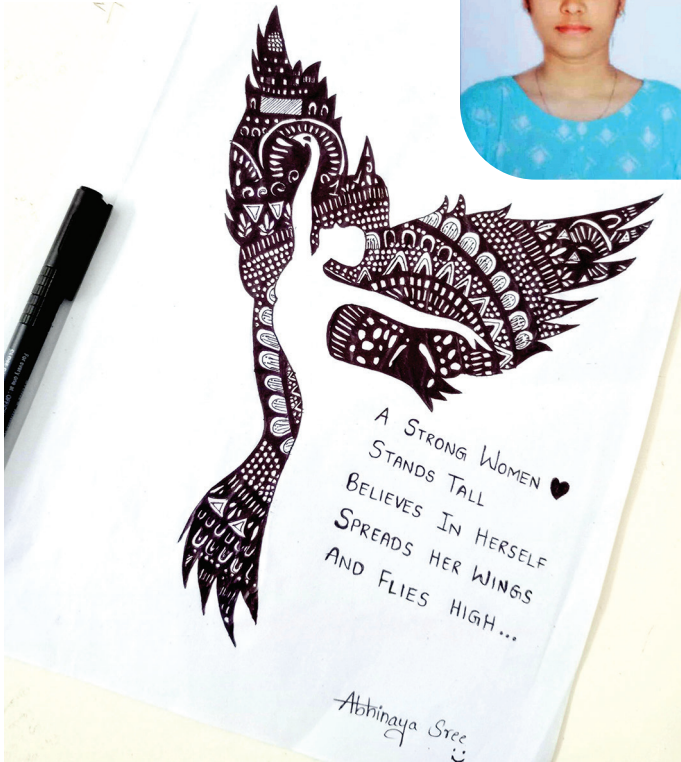 A STRONG WOMEN ♥
STANDS TALL
BELIEVES IN HERSELF
SPREADS HER WINGS
AND FLIES HIGH...
Abhinaya Sree